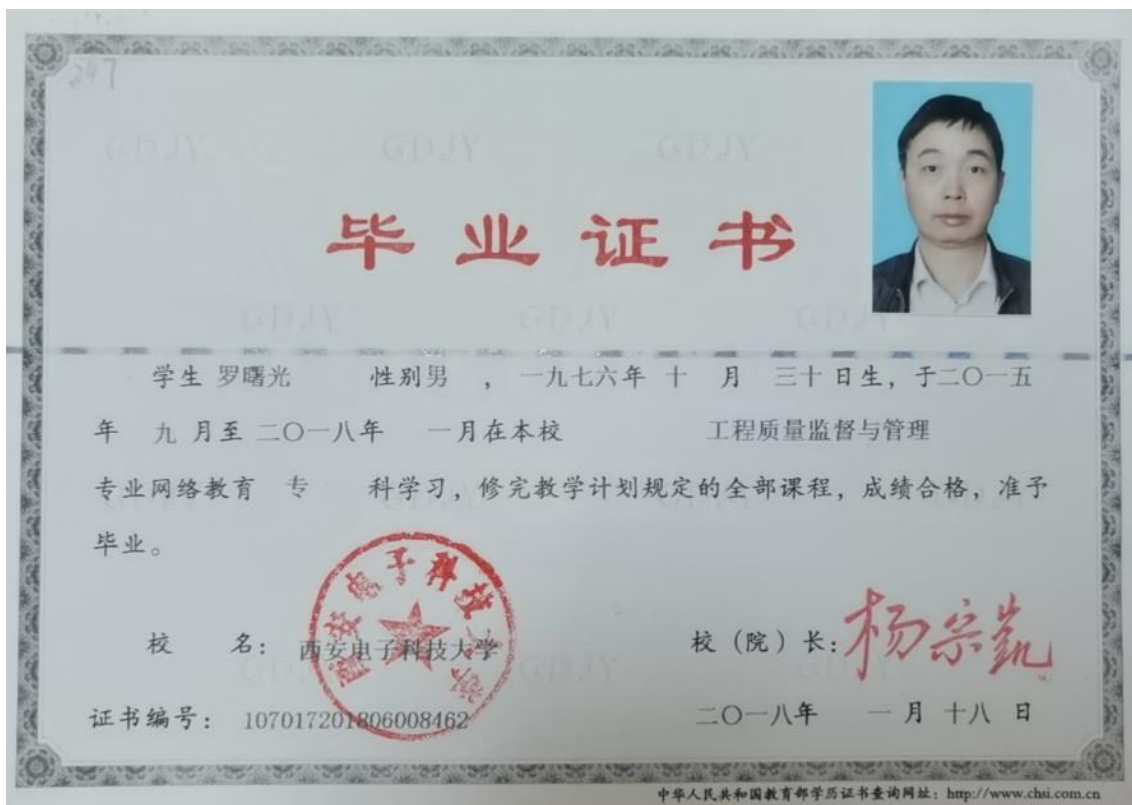 247
GDJY GDJY GDJY
毕业证书
GDJY GDJY GDJY
学生 罗曙光 性别男 ， 一九七六年 十 月 三十日生，于二〇一五
年 九 月至二〇一八年 一月在本校 工程质量监督与管理
专业网络教育 专 科学习，修完教学计划规定的全部课程，成绩合格，准予
毕业。
西安电子科技大学
校 名： 西安电子科技大学 校（院）长：杨宗凯
证书编号： 107017201806008462 二〇一八年 一月 十八 日
中华人民共和国教育部学历证书查询网址：http://www.chsi.com.cn